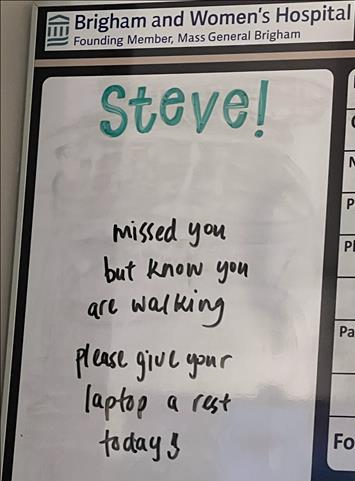 Brigham and Women's Hospital
Founding Member, Mass General Brigham
Steve!
missed you
but know you
are walking
please give your
laptop a rest
today!
P
Pl
Pa
Fo